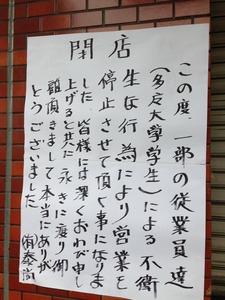 閉店
この度、一部の従業員達
(多摩大学学生)による不衛
生な行為により営業を
停止させて頂く事になりま
した。皆様には深くおわび申し
上げると共に永きに渡り御
愛顧頂きまして本当にありが
とうございました。
(有)泰尚